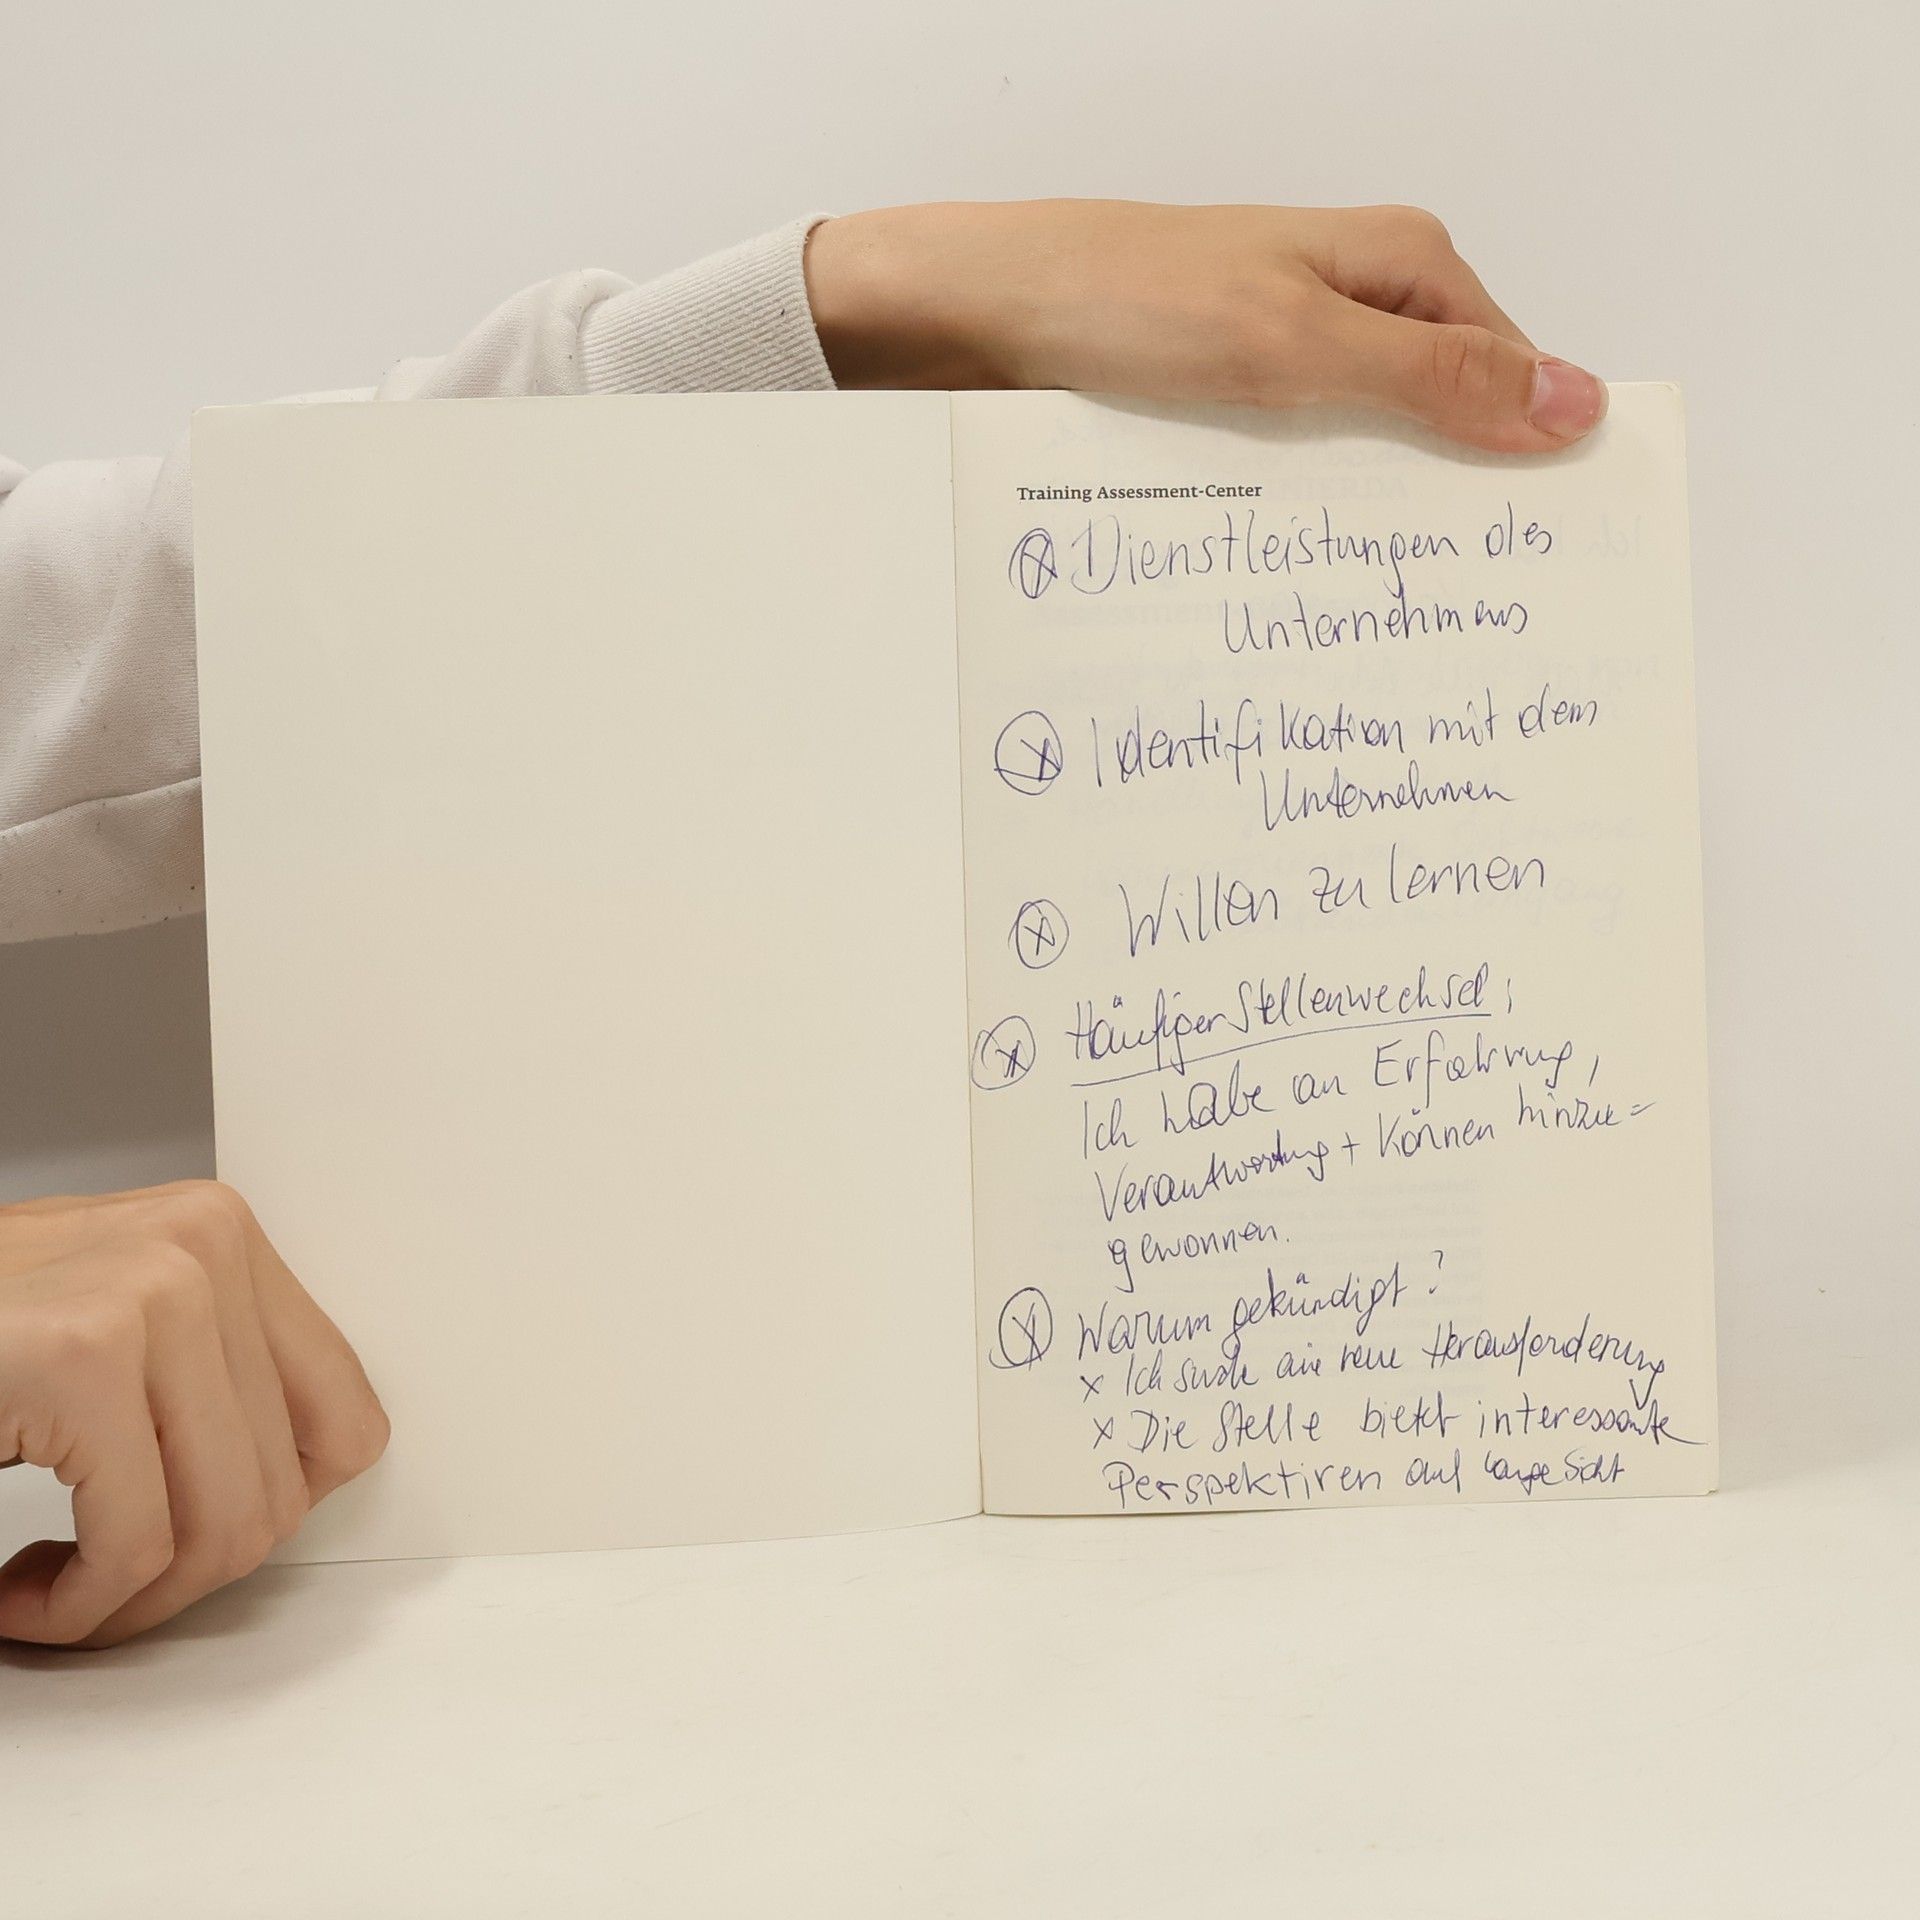 Training Assessment-Center
ⓧ Dienstleistungen des
Unternehmens
ⓧ Identifikation mit dem
Unternehmen
ⓧ Willen zu lernen
ⓧ Häufiger Stellenwechsel;
Ich habe an Erfahrung,
Verantwortung + Können hinzu=
gewonnen.
ⓧ Warum gekündigt?
x Ich suche eine neue Herausforderung
x Die Stelle bietet interessante
Perspektiven auf lange Sicht